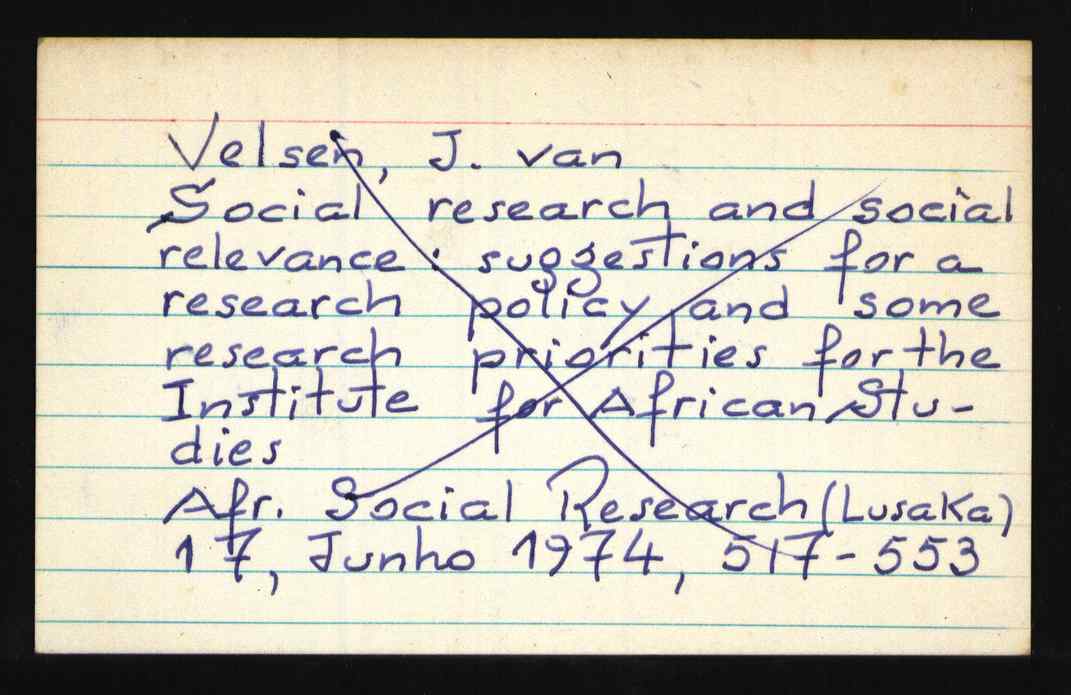 Velsen, J. van
Social research and social
relevance : suggestions for a
research policy and some
research priorities for the
Institute for African Stu-
dies
Afr. Social Research (Lusaka)
17, Junho 1974, 517-553